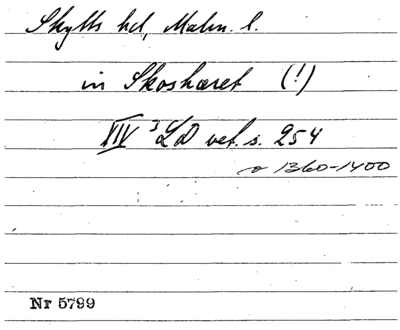 Skytts hd, Malm. l.
in Skoshæret (!)
XIV ³ LD vet. s. 254
1360-1400
Nr 5799